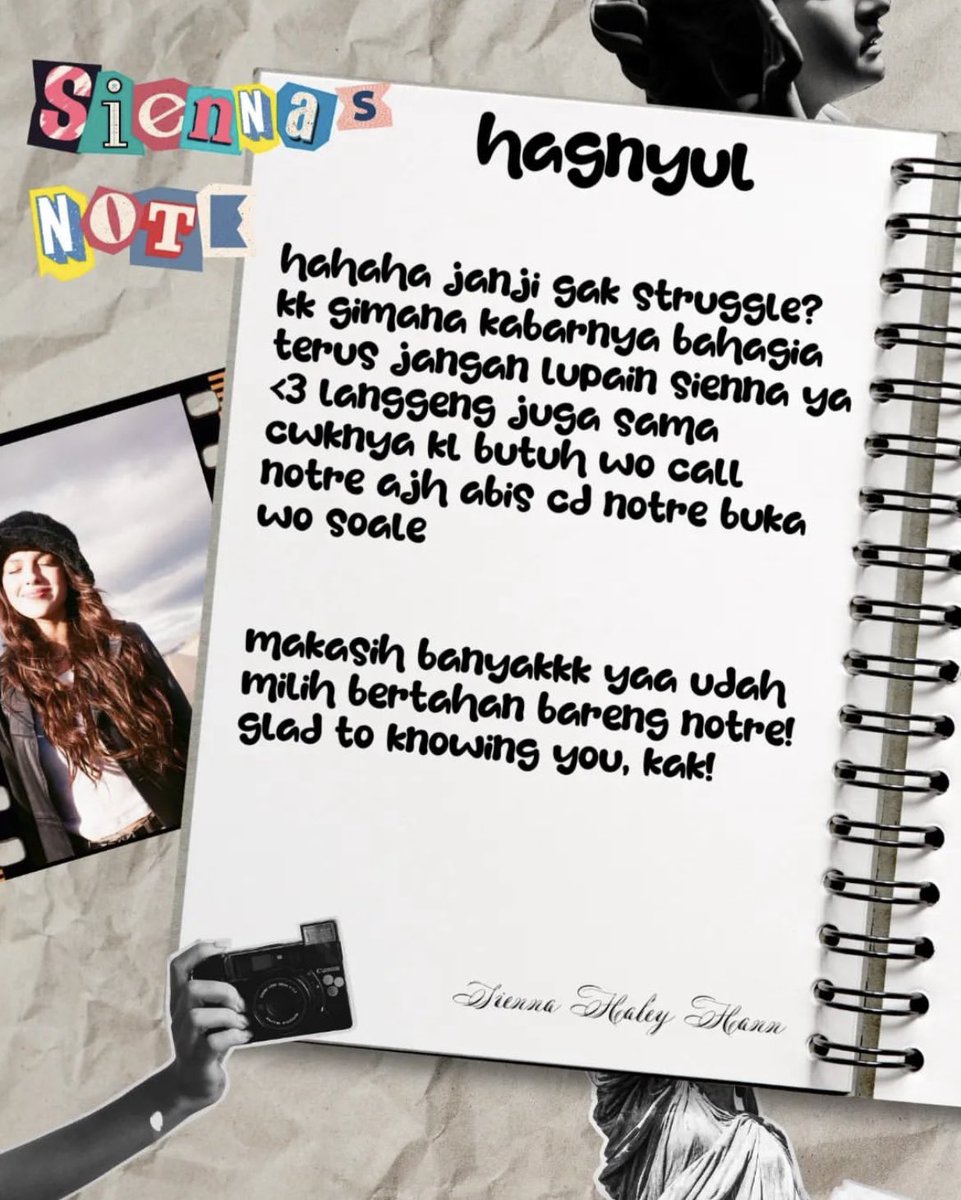 Siennas
NOTE
hagnyul
hahaha janji gak struggle?
kk gimana kabarnya bahagia
terus jangan lupain sienna ya
<3 langgeng juga sama
cwknya kl butuh wo call
notre ajh abis cd notre buka
wo soale
makasih banyakkk yaa udah
milih bertahan bareng notre!
glad to knowing you, kak!
Canon
Sienna Haley Hann